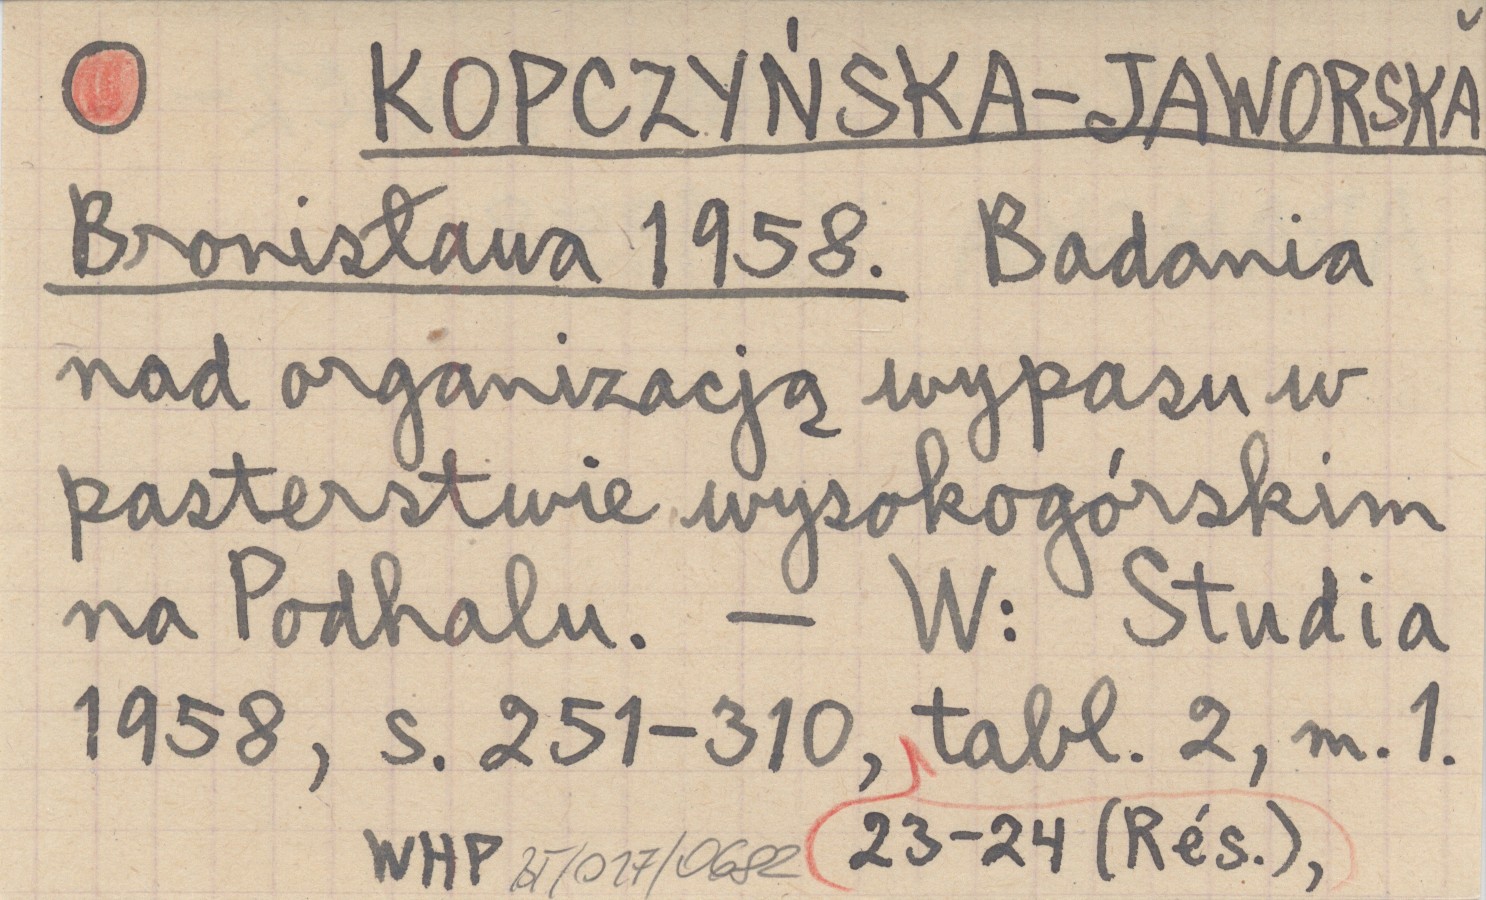 KOPCZYŃSKA-JAWORSKA
Bronisława 1958. Badania
nad organizacją wypasu w
pasterstwie wysokogórskim
na Podhalu. – W: Studia
1958, s. 251-310, tabl. 2, m. 1.
23-24 (Rés.),
WHP